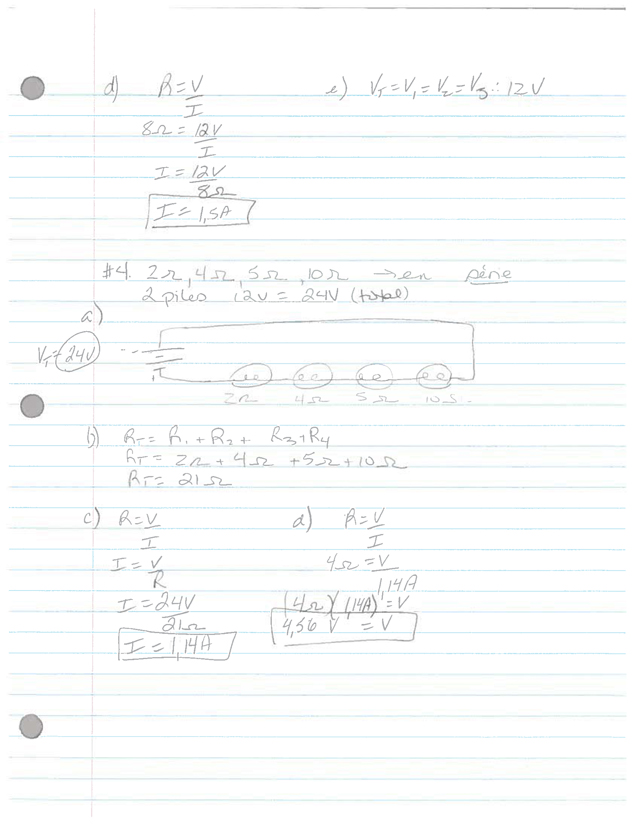 d) R = V/I
8Ω = 12V/I
I = 12V/8Ω
I = 1,5A
e) VT = V1 = V2 = V3 ∴ 12V
#4. 2Ω, 4Ω, 5Ω, 10Ω → en série
2 piles 12V = 24V (total)
a)
VT = 24V
2Ω 4Ω 5Ω 10Ω
b) RT = R1 + R2 + R3 + R4
RT = 2Ω + 4Ω + 5Ω + 10Ω
RT = 21Ω
c) R = V/I
I = V/R
I = 24V/21Ω
I = 1,14A
d) R = V/I
4Ω = V/1,14A
(4Ω)(1,14A) = V
4,56 V = V